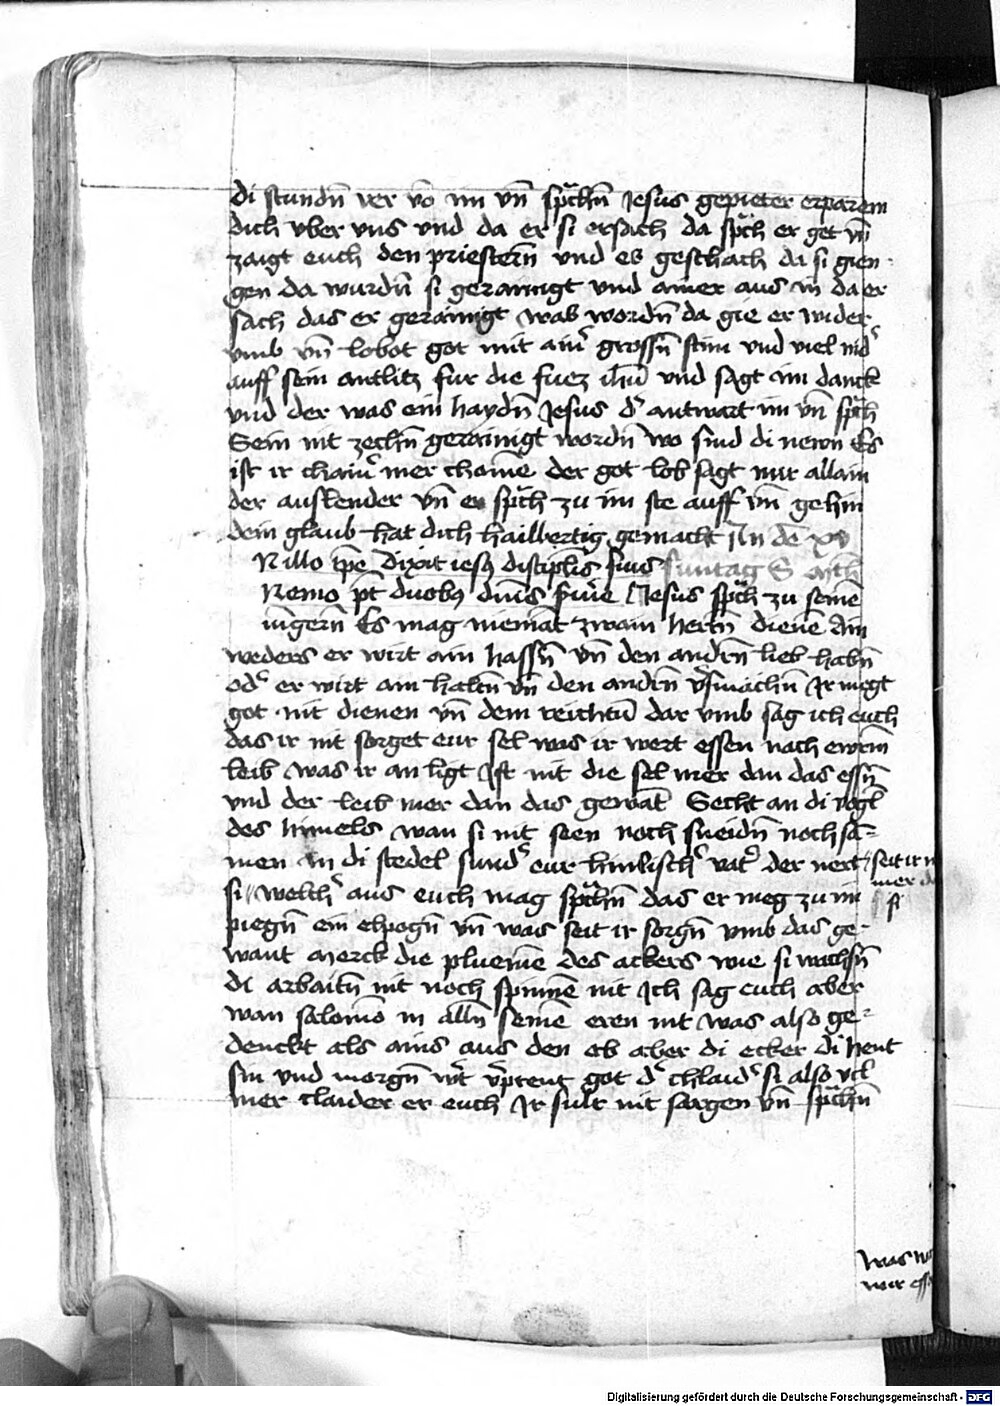 di stundn̄ ver vō im vn̄ sprͣchn̄ Jesus gepieter erparem
dich vber vns vnd da er si ersach da sprͣch er get vn̄
zaigt euch den priestern̄ vnd es geschach da si gien-
gen da wurdn̄ si gerainigt vnd ainer aus in da er
sach das er gerainigt was wordn̄ da gie er wider
vmb vn̄ lobot got mit ainͬ grossn̄ stim vnd viel nidͬ
auff sein antlitz fur die fuez ih̄u vnd sagt im danck
vnd der was ein haydn̄ Jesus dͬ antwart im vn̄ sprͣch
Sein nit zechn̄ gerainigt wordn̄ wo sind di newn Es
ist ir chainͬ mer chomē der got lob sagt nur allain
der auslender vn̄ er sprͣch zu im ste auff vn̄ ge hin
dein glaub hat dich hailbertig gemacht In dē xv
Nillo tp̄e Dixit iesꝯ disciplis suis suntag S Mth
Nemo pt̄ duobꝯ dn̄is s̄uire Jesus sprͣch zu seinē
iūgern̄ Es mag niemāt zwain hertn̄ dienē Ain
weders er wirt ain hassn̄ vn̄ den andrn̄ lieb habn̄
odͬ er wirt ain haltn̄ vn̄ den andrn̄ vͬsmachn̄ Ir megt
got nit dienen vn̄ dem reichtū dar vmb sag ich euch
das ir nit sorget eur sel was ir wert essen nach ewrm̄
leib was ir an ligt Ist nit die sel mer dan das essn̄
vnd der leib mer dan das gewāt Secht an di vogl̄
des himels wan si nit seen noch sneidn̄ noch sā-
men in di stedel sundͬ eur himlischͬ vatͬ der nert
seit ir n
mer d
si welchͬ aus euch mag sprͣchn̄ das er meg zu im
piegn̄ ein elpogn̄ vn̄ was seit ir sorgn̄ vmb das ge-
want Merck die pluemē des ackers wie si wachsn̄
di arbaitn̄ nit noch spinnē nit Ich sag euch aber
wan salomō in alln̄ seinē eren nit was also ge-
denckt als ains aus den ob aber di ecker di hewt
sin vnd morgn̄ wͬt vͬprent got dͬ chlaidͬ si also vil
mer claider er euch Ir sult nit sargen vn̄ sprͣchn̄
was
wir ess
Digitalisierung gefördert durch die Deutsche Forschungsgemeinschaft - DFG